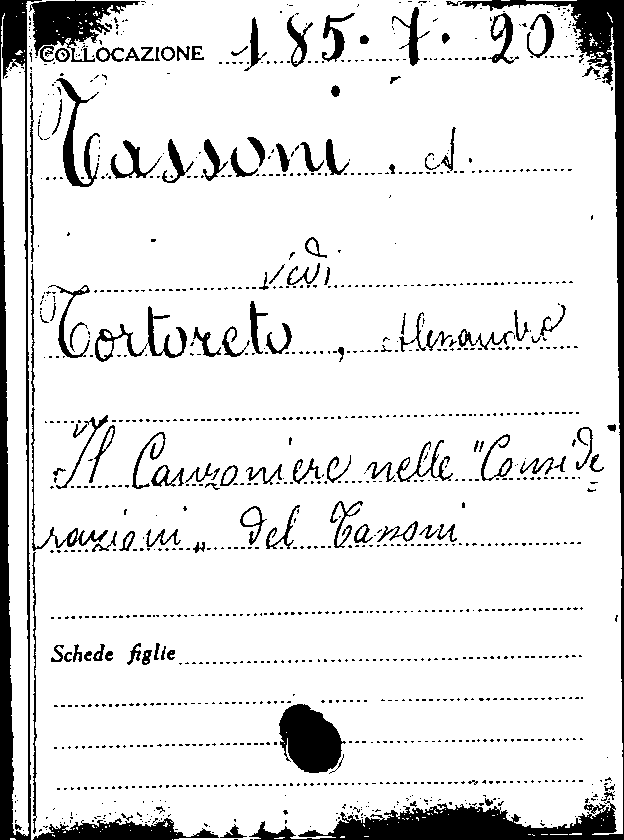 COLLOCAZIONE 185.7.20
Tassoni, A.
vedi
Tortoreto, Alessandro
Il Canzoniere nelle "Conside=
razioni" del Tassoni
Schede figlie